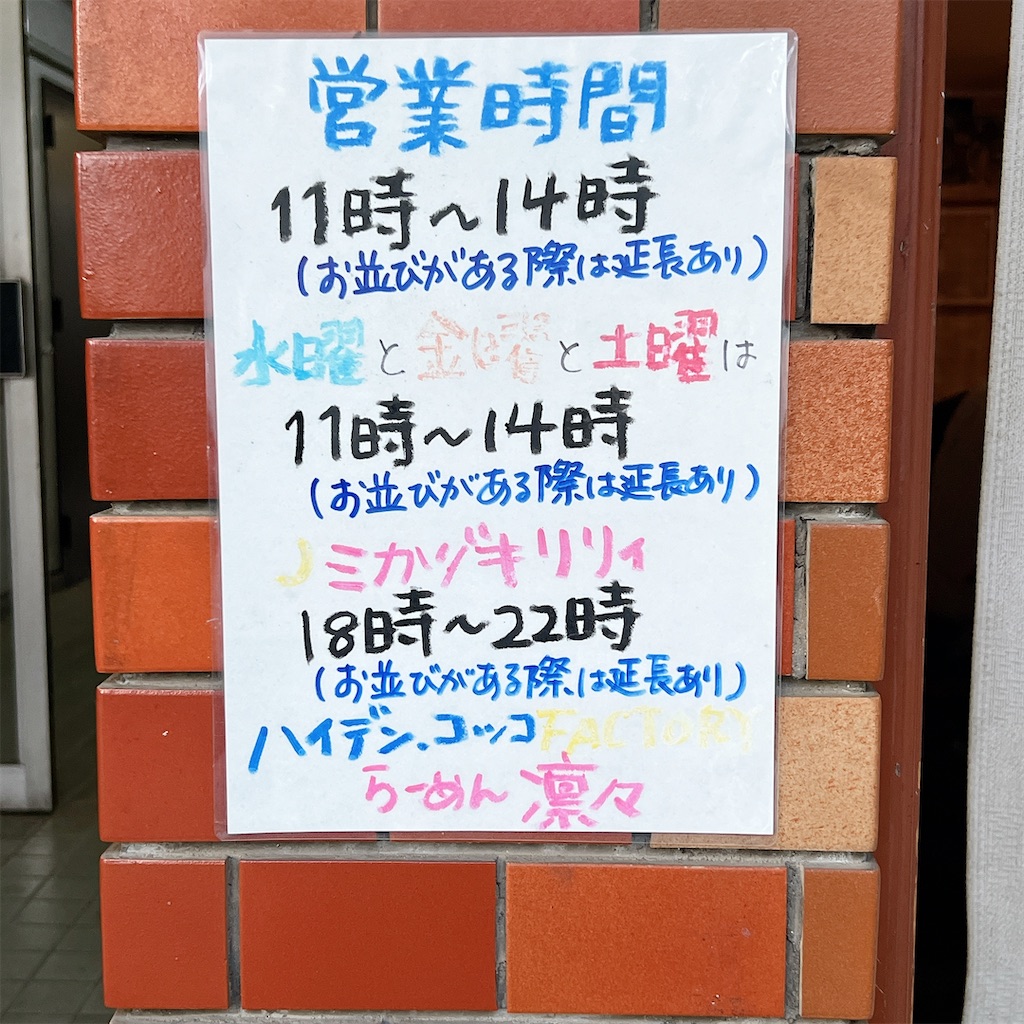 営業時間
11時～14時
(お並びがある際は延長あり)
水曜と金曜と土曜は
11時～14時
(お並びがある際は延長あり)
ミカヅキリリィ
18時～22時
(お並びがある際は延長あり)
ハイデン.コッコFACTORY
らーめん 凛々